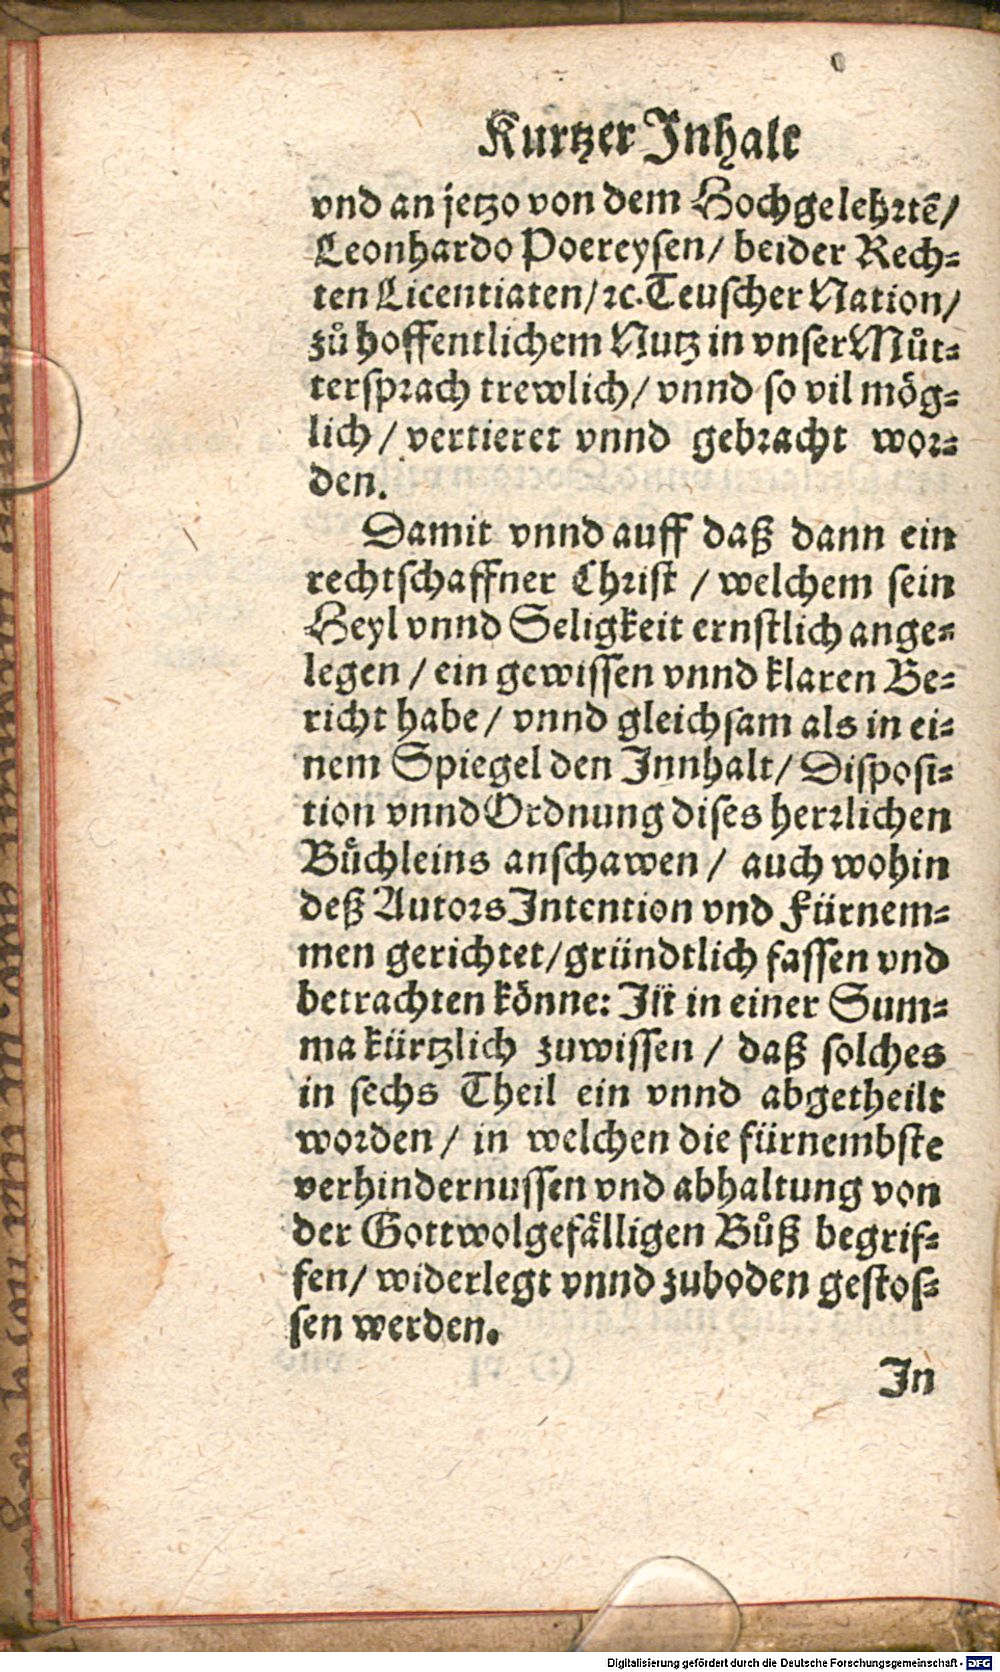 Kurtzer Inhalt
vnd an jetzo von dem Hochgelehrtẽ/
Leonhardo Poereysen/ beider Rech-
ten Licentiaten/ ꝛc. Teuscher Nation/
zů hoffentlichem Nutz in vnser Můt-
tersprach trewlich/ vnnd so vil mög-
lich/ vertieret vnnd gebracht wor-
den.
Damit vnnd auff daß dann ein
rechtschaffner Christ/ welchem sein
Heyl vnnd Seligkeit ernstlich ange-
legen/ ein gewissen vnnd klaren Be-
richt habe/ vnnd gleichsam als in ei-
nem Spiegel den Innhalt/ Disposi-
tion vnnd Ordnung dises herrlichen
Bůchleins anschawen/ auch wohin
deß Autors Intention vnd Fürnem-
men gerichtet/ gründtlich fassen vnd
betrachten könne: Ist in einer Sum-
ma kürtzlich zuwissen/ daß solches
in sechs Theil ein vnnd abgetheilt
worden/ in welchen die fürnembste
verhindernussen vnd abhaltung von
der Gottwolgefälligen Bůß begrif-
fen/ widerlegt vnnd zuboden gestos-
sen werden.
In
Digitalisierung gefördert durch die Deutsche Forschungsgemeinschaft - DFG